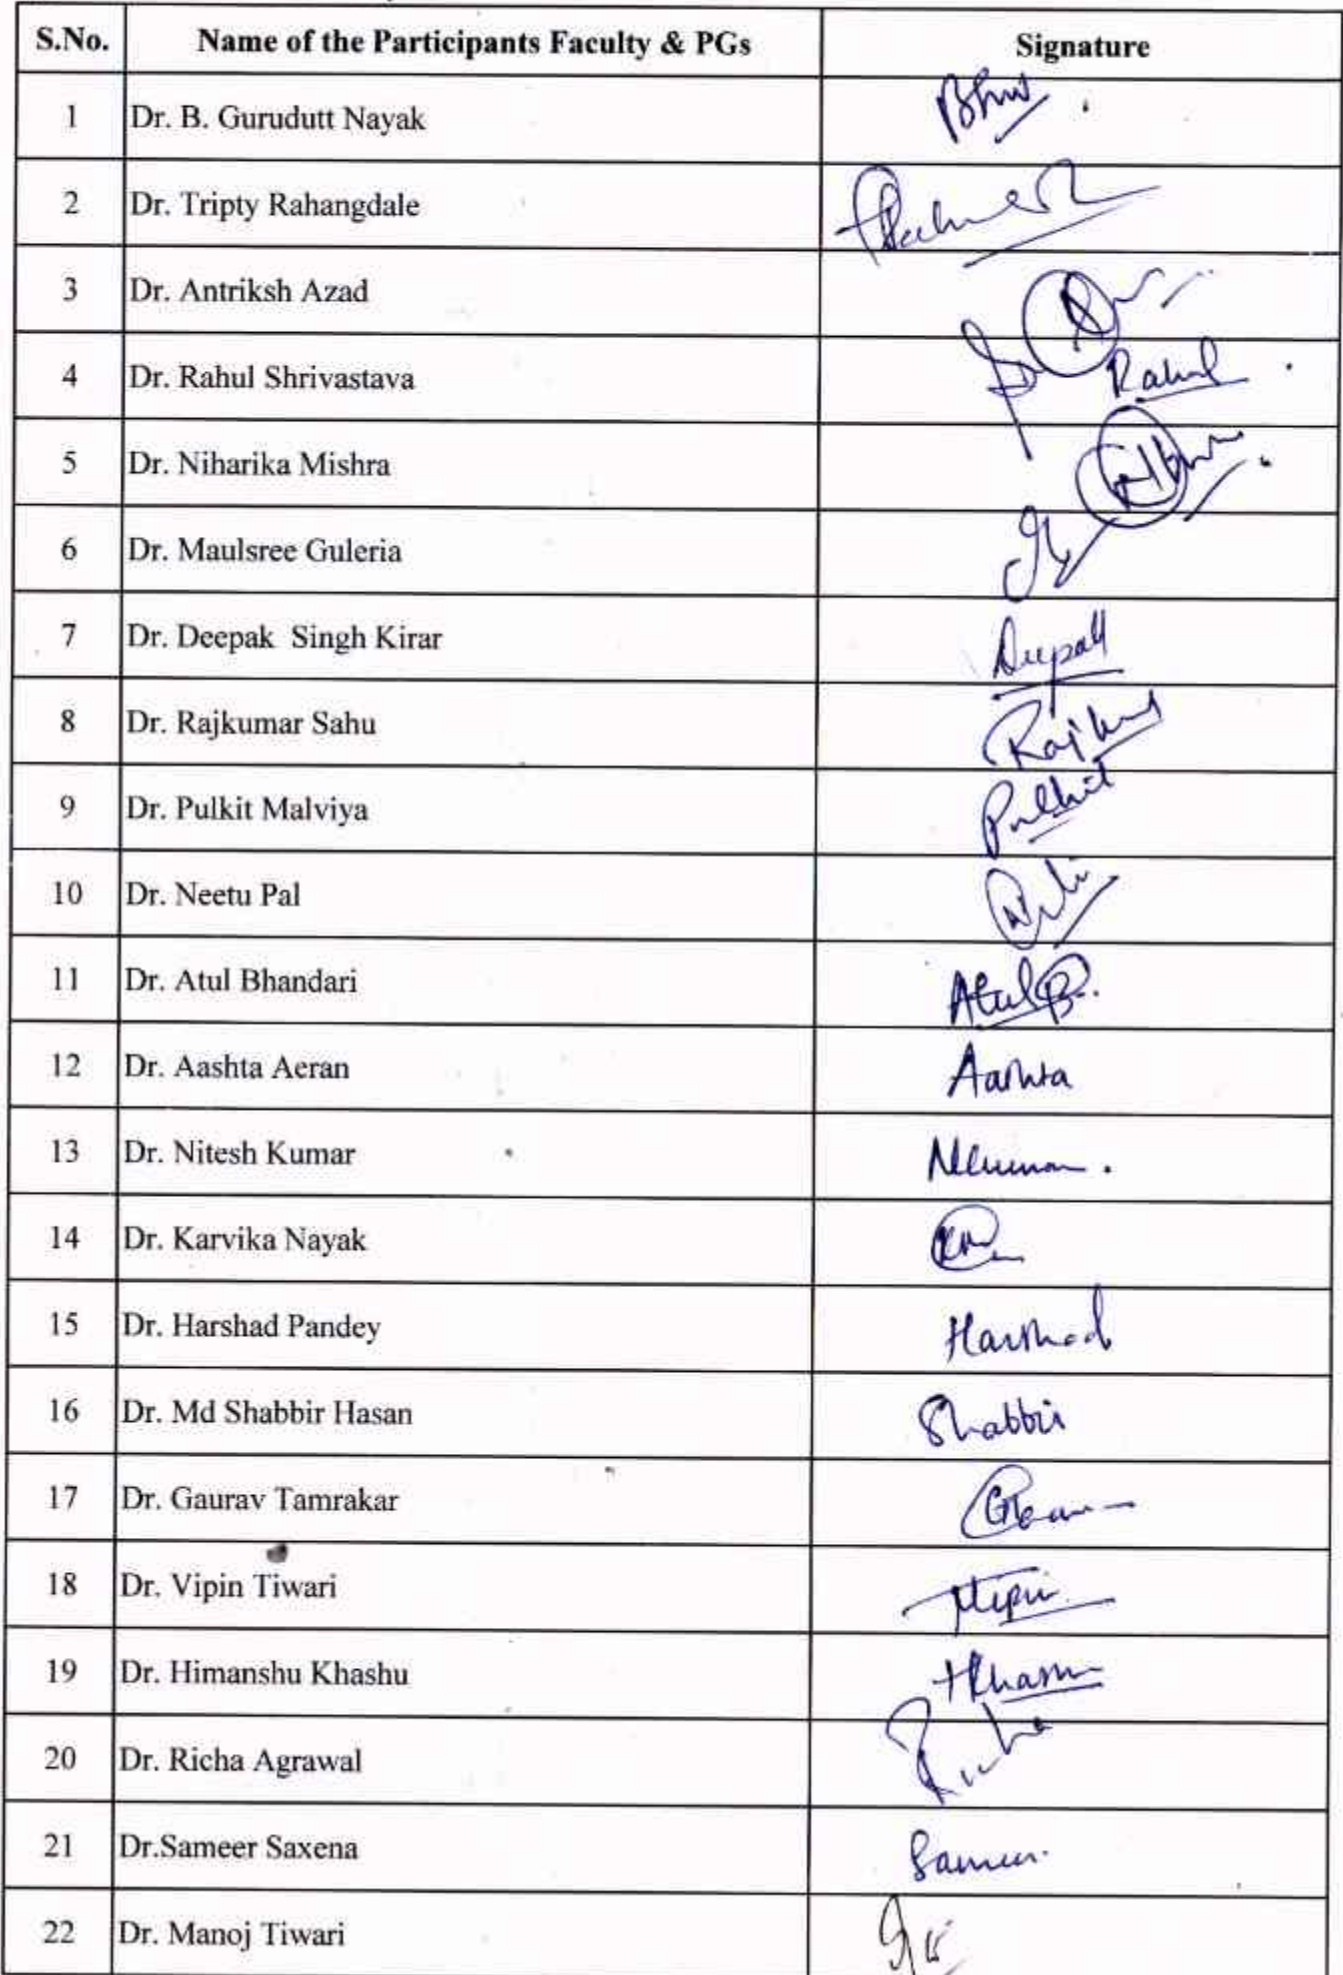 S.No. Name of the Participants Faculty & PGs Signature
1 Dr. B. Gurudutt Nayak
2 Dr. Tripty Rahangdale
3 Dr. Antriksh Azad
4 Dr. Rahul Shrivastava Rahul
5 Dr. Niharika Mishra
6 Dr. Maulsree Guleria
7 Dr. Deepak Singh Kirar Deepak
8 Dr. Rajkumar Sahu
9 Dr. Pulkit Malviya Pulkit
10 Dr. Neetu Pal
11 Dr. Atul Bhandari Atul B.
12 Dr. Aashta Aeran Aashta
13 Dr. Nitesh Kumar
14 Dr. Karvika Nayak
15 Dr. Harshad Pandey Harshad
16 Dr. Md Shabbir Hasan Shabbir
17 Dr. Gaurav Tamrakar
18 Dr. Vipin Tiwari Vipin
19 Dr. Himanshu Khashu
20 Dr. Richa Agrawal Richa
21 Dr.Sameer Saxena Sameer
22 Dr. Manoj Tiwari